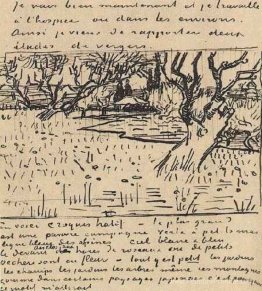 Je vais bien maintenant et je travaille
à l'hospice ou dans les environs.
Ainsi je viens de rapporter deux
études de vergers.
En voici croquis hatif le plus grand
est une pauvre campagne verte à petits mas
ligne bleue des ciel blanc et bleu
de roseaux
en fleur tout y est petit les jardins
les champs les jardins les arbres même ces montagnes
comme dans certains paysages japonais c'est pourquoi
ce motif m'attirait